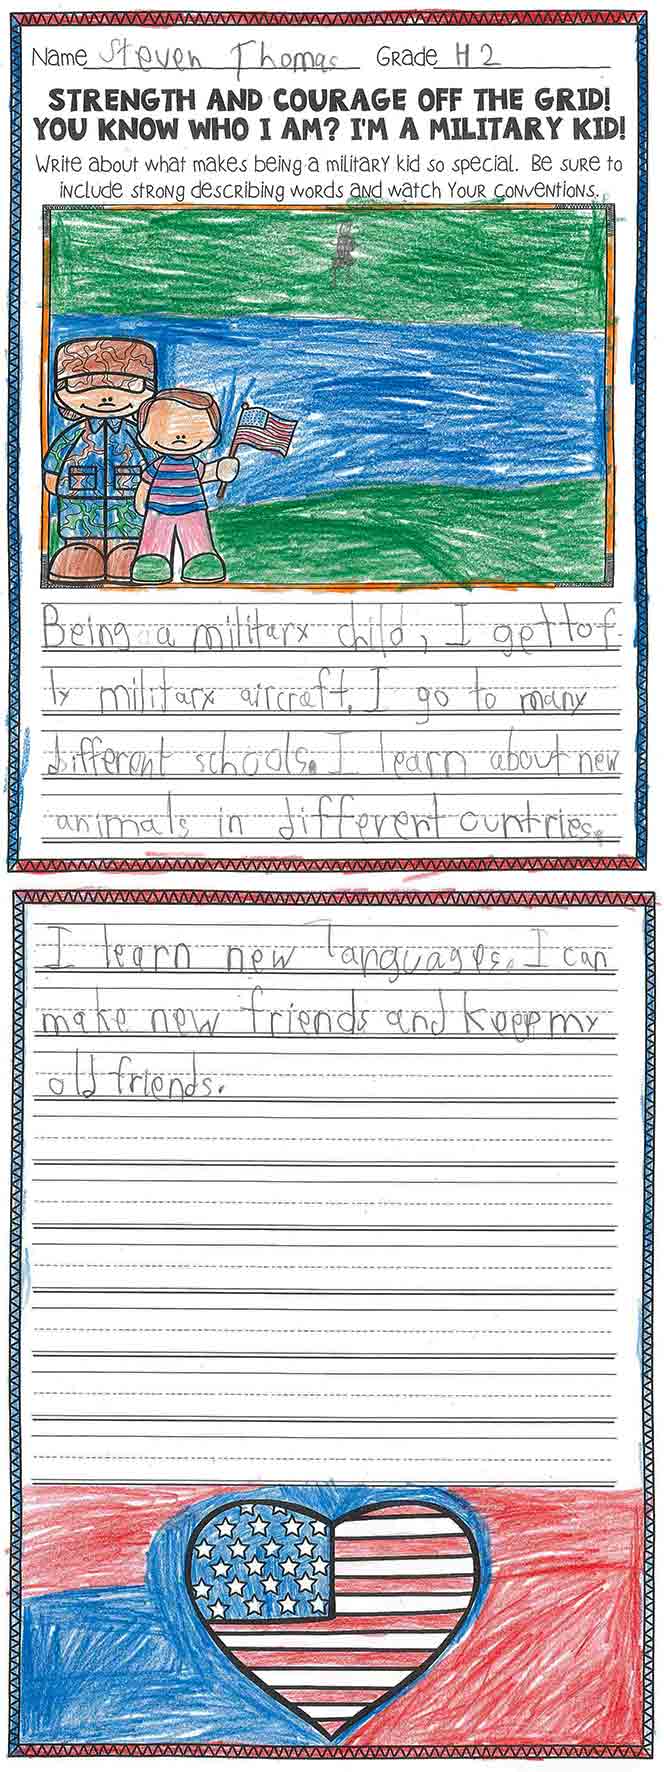 Name Steven Thomas Grade H2
STRENGTH AND COURAGE OFF THE GRID!
YOU KNOW WHO I AM? I'M A MILITARY KID!
Write about what makes being a military kid so special. Be sure to
include strong describing words and watch your conventions.
Being a military child, I get to f
ly military aircraft. I go to many
different schools. I learn about new
animals in different ountries.
I learn new languages. I can
make new friends and keep my
old friends.